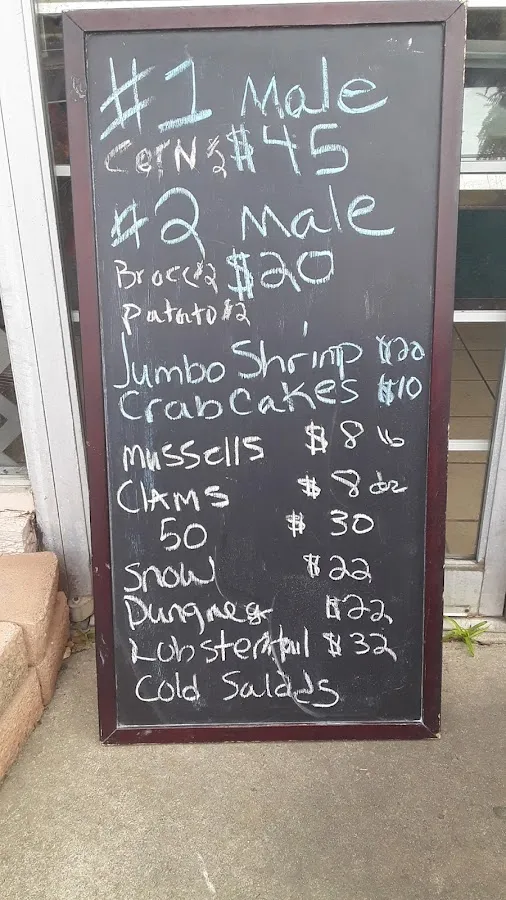 #1 Male
Corn $2 $45
#2 Male
Brocc $2 $20
Patato $2
Jumbo Shrimp $20
Crab Cakes $10
mussells $8 lb
Clams $8 dz
50 $30
Snow $22
Dungnes $22
Lobstertail $32
Cold Salads